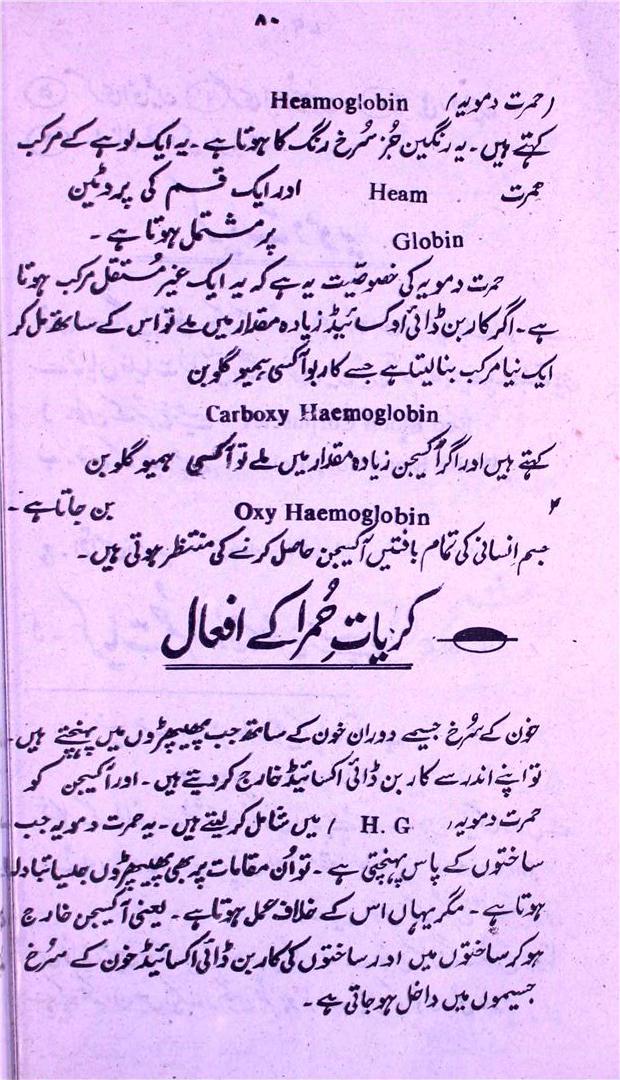 ۸۰
(حمرت دمویہ) Heamoglobin
کہتے ہیں۔ یہ رنگین جُز سُرخ رنگ کا ہوتا ہے۔ یہ ایک لوہے کے مرکب
حمرت Heam اور ایک قسم کی پروٹین
Globin پر مشتمل ہوتا ہے۔
حمرت دمویہ کی خصوصیّت یہ ہے کہ یہ ایک غیر مُستقل مرکب ہوتا
ہے۔ اگر کاربن ڈائی اوکسائیڈ زیادہ مقدار میں ملے تو اس کے ساتھ مل کر
ایک نیا مرکب بنا لیتا ہے جسے کاربو آکسی ہیمو گلوبن
Carboxy Haemoglobin
کہتے ہیں اور اگر آکسیجن زیادہ مقدار میں ملے تو آکسی ہیمو گلوبن
Oxy Haemoglobin بن جاتا ہے۔
جسم انسانی کی تمام بافتیں آکسیجن حاصل کرنے کی منتظر ہوتی ہیں۔
کریاتِ حُمرا کے افعال
خون کے سُرخ جسیمے دوران خون کے ساتھ جب پھیپھڑوں میں پہنچتے ہیں۔
تو اپنے اندر سے کاربن ڈائی اکسائیڈ خارج کر دیتے ہیں۔ اور آکسیجن کو
حمرت دمویہ، H. G ) میں شامل کر لیتے ہیں۔ یہ حمرت دمویہ جب
ساختوں کے پاس پہنچتی ہے۔ تو اُن مقامات پر بھی پھیپھڑوں جیسا تبادلہ
ہوتا ہے۔ مگر یہاں اس کے خلاف عمل ہوتا ہے۔ یعنی آکسیجن خارج
ہو کر ساختوں میں اور ساختوں کی کاربن ڈائی اکسائیڈ خون کے سُرخ
جسیموں میں داخل ہو جاتی ہے۔